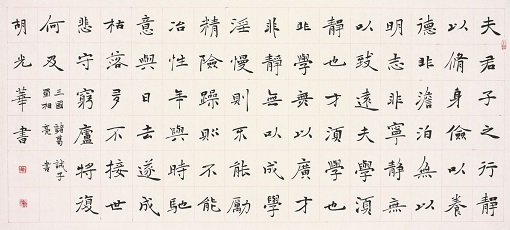 夫君子之行靜
以脩身儉以養
德非澹泊無以
明志非寧靜無
以致遠夫學須
靜也才須學也
非學無以廣才
非靜無以成學
淫慢則不能勵
精險躁則不能
冶性年與時馳
意與日去遂成
枯落多不接世
悲守窮廬將復
何及
三國蜀相諸葛亮誡子書
胡光華書